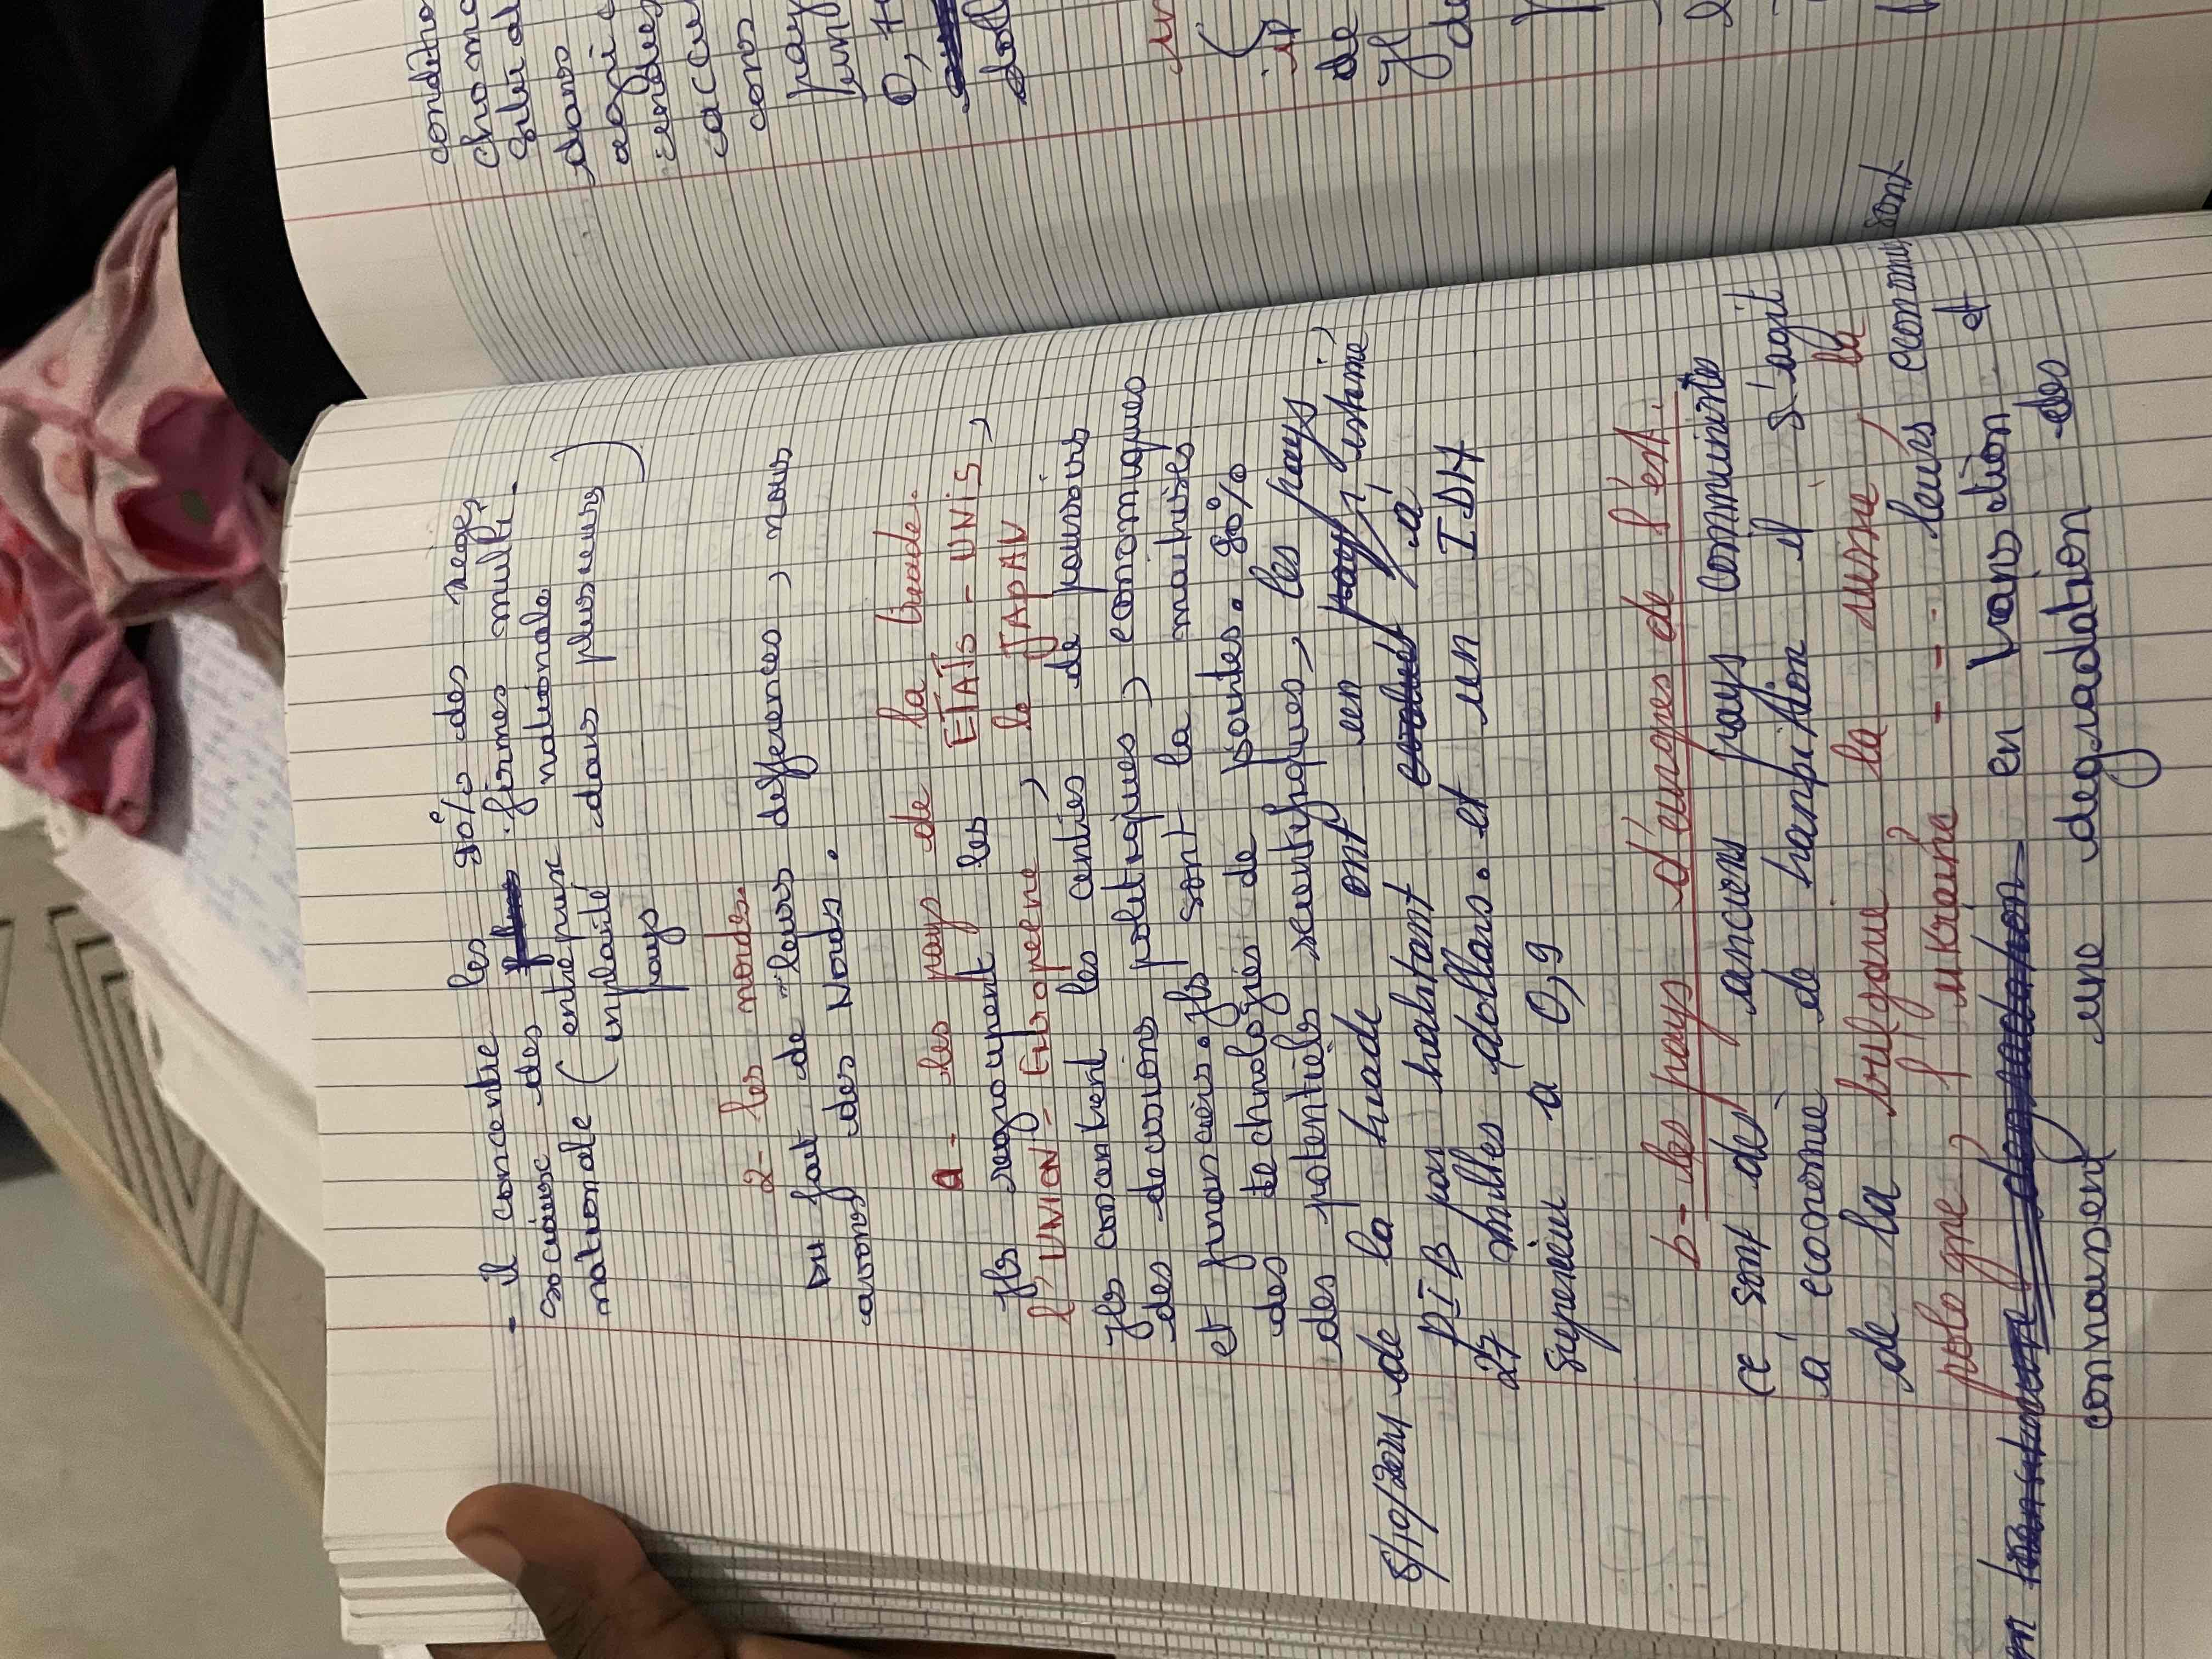 - il concentre les 90% des sièges
sociaux des firmes multi.
nationale ( entrepruse nationale
implanté dans plusieurs )
pays
2- les nords.
DU fait de leurs defferences, nous
avons des Nords.
a- les pays de la triade.
Ils regroupent les ETATS-UNIS,
l'UNION-Européene, le JAPAN
Ils consentrent les centres de pouvoirs
des decisions politiques, economiques
et financiers. Ils sont la maitrises
des technologies de pointes. 90%
des potentiels scientifiques, les pays
de la triade ont un
5/10/2021 PIB par habitant estimé à
27 milles dollars. et un IDH
Superieur a 0,9
b- les pays d'europes de l'est.
ce sont des anciens pays communistes
à economie de transition il s'agit
de la bulgarie la russie, la
pologne, l'ukraine ---- leurs econom sont
en transition et
connaissent une degradation des
condition
choma
dans
cons
pay
0,7
de
Il